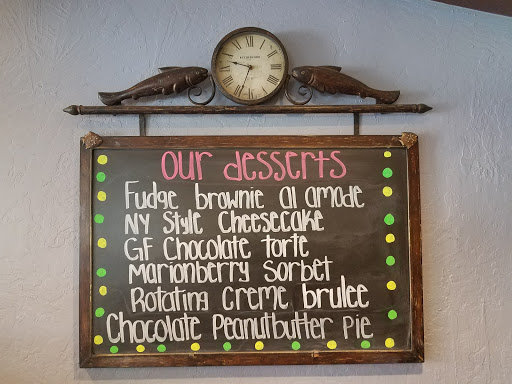 our desserts
Fudge brownie al amode
NY Style Cheesecake
GF Chocolate torte
marionberry Sorbet
Rotating creme brulee
Chocolate Peanutbutter pie